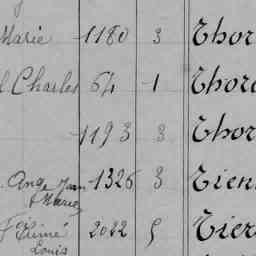 Marie 1180 3 Thor
Charles 64 1 Thor
1193 3 Thor
Ange Jean 1326 3 Tien
& Marie
Aimé 2022 5 Tier
Louis